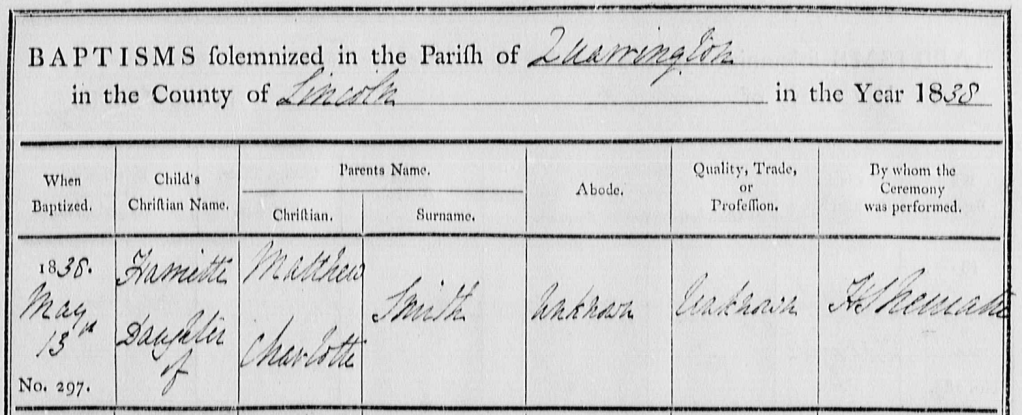 BAPTISMS solemnized in the Parish of Quarrington
in the County of Lincoln in the Year 1838
When
Baptized.
Child's
Christian Name.
Parents Name.
Christian.
Surname.
Abode.
Quality, Trade,
or
Profession.
By whom the
Ceremony
was performed.
1838.
May
13th
No. 297.
Harriette
Daughter
of
Matthew
Charlotte
Smith
Unknown
Unknown